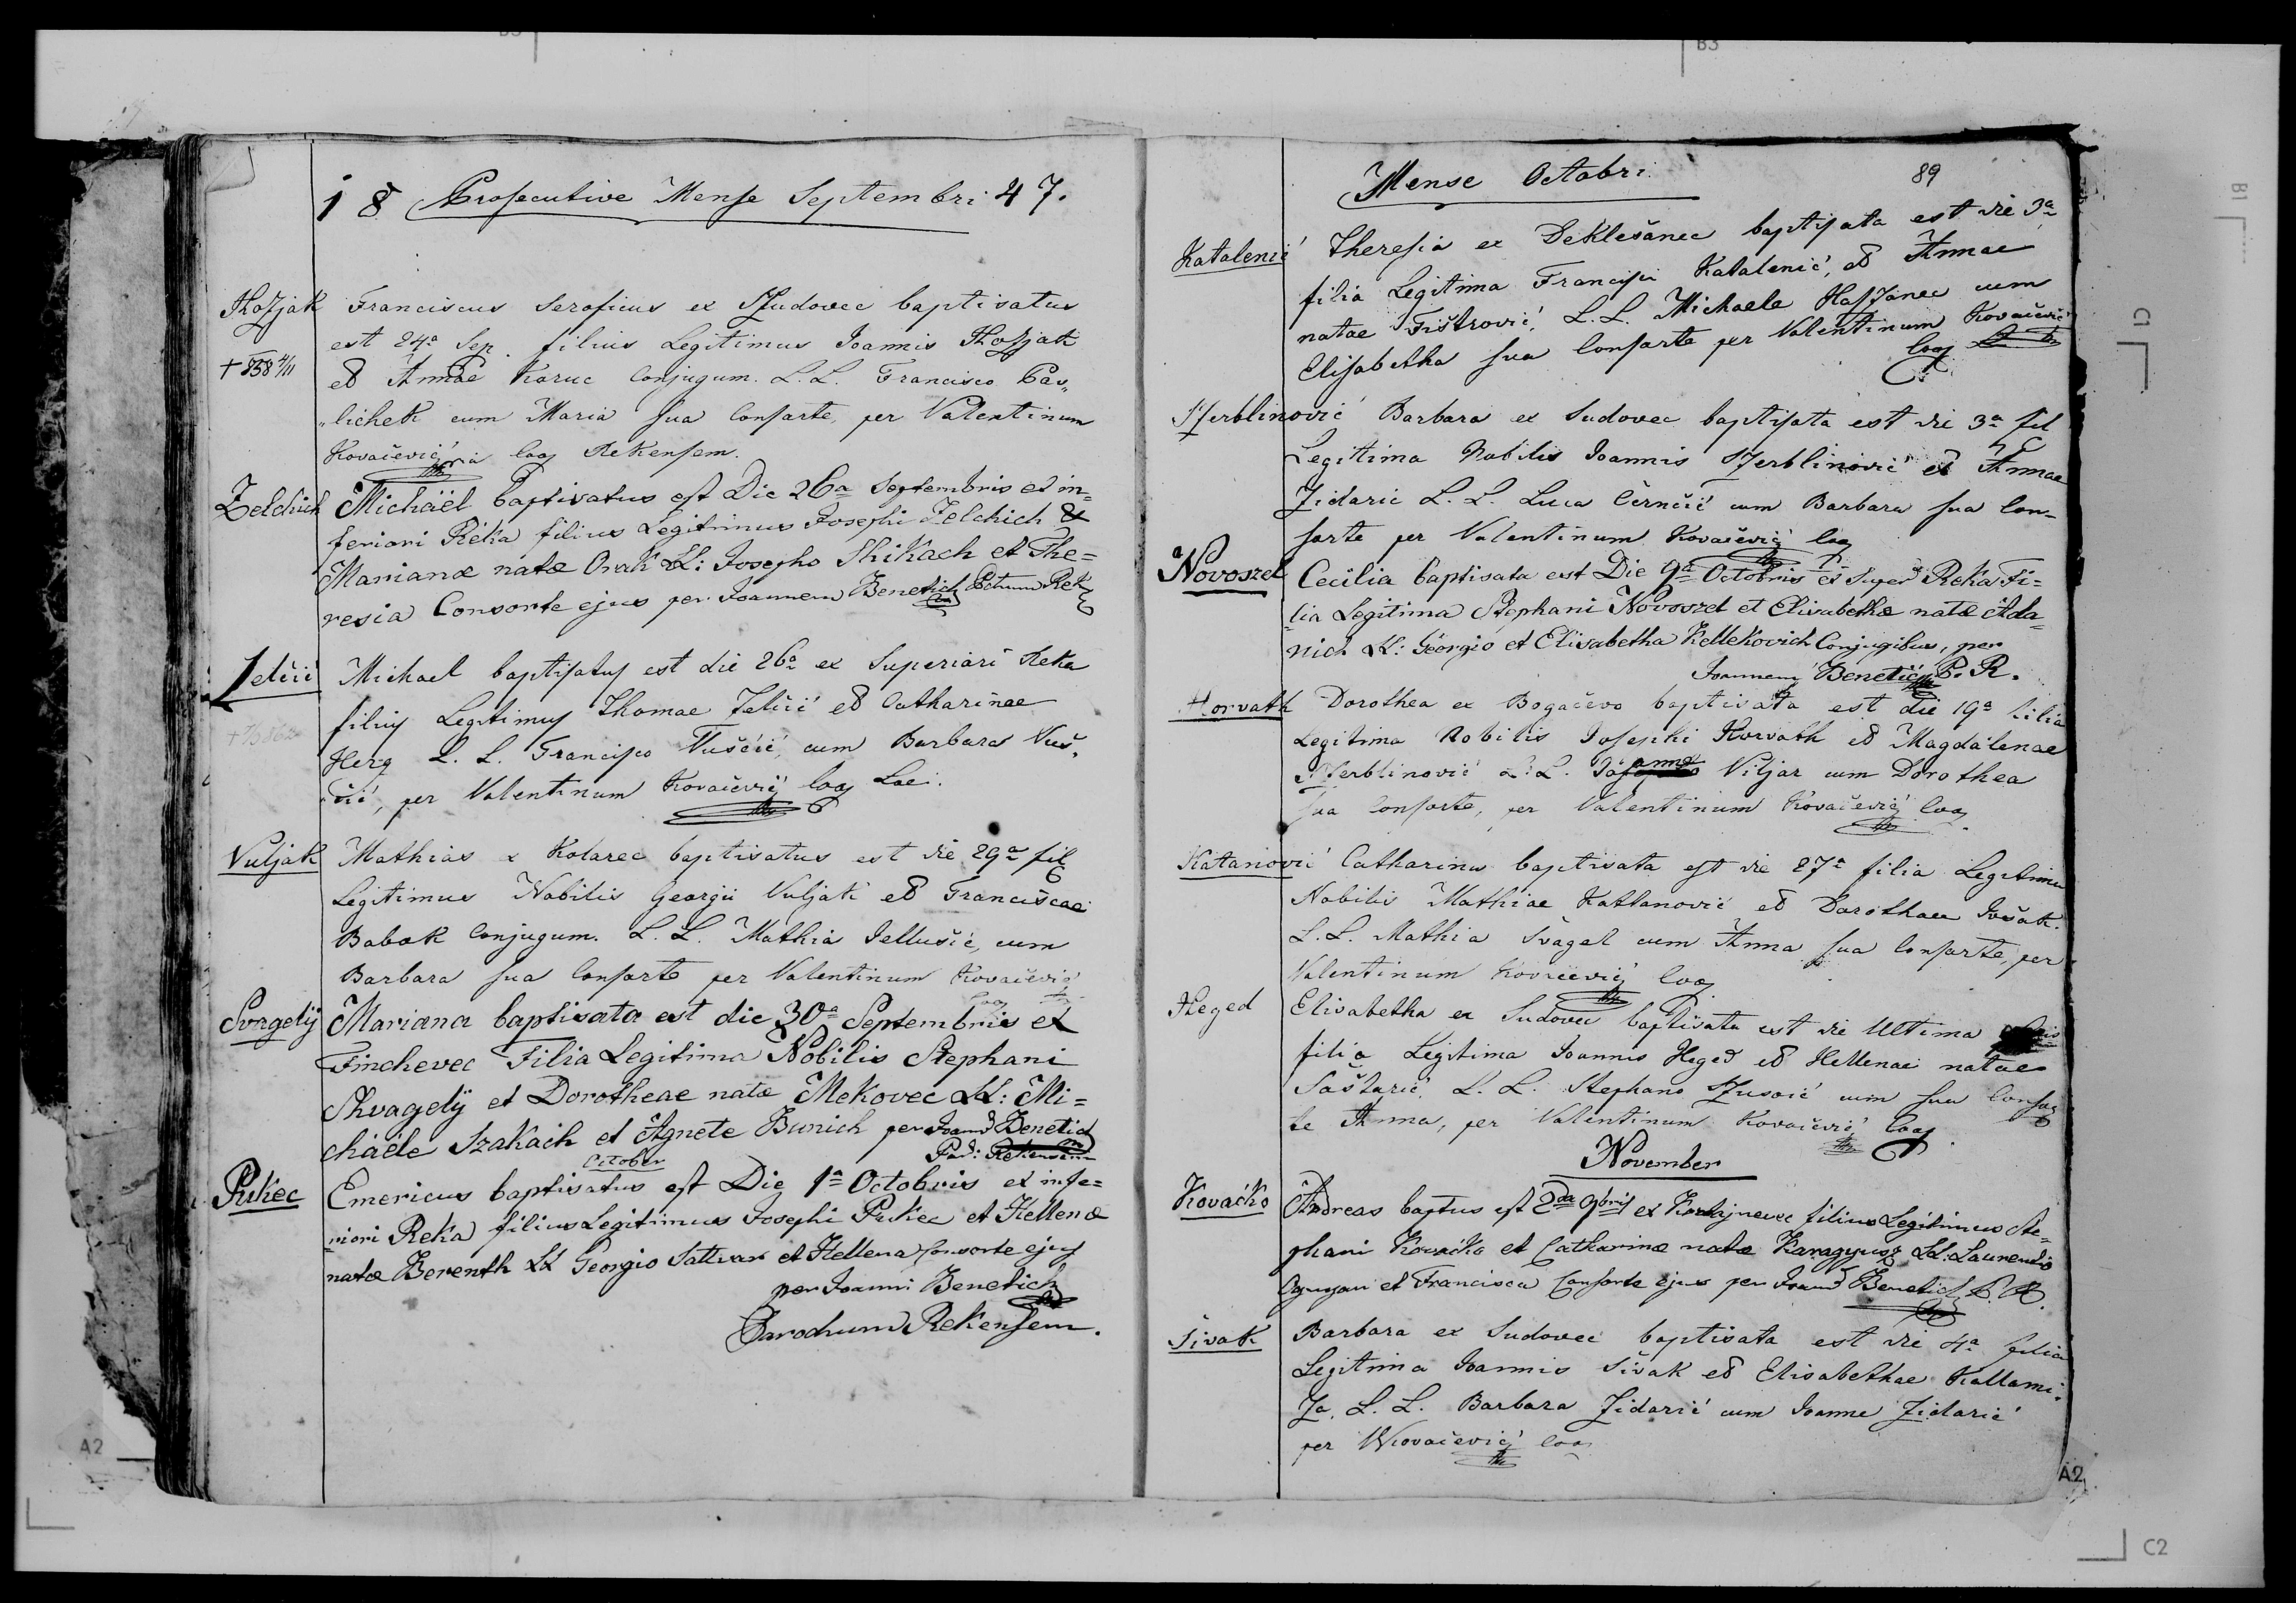 18 Prosecutive Mense Septembri 47.
Hozjak
+ 858 4/11
Franciscus Seraficus ex Szudovec baptisatus
est 24a Sep. filius Legitimus Joannis Hozjak
et Annae Karuc Conjugum. L.L. Francisco Pav„
„lichek cum Maria sua Consorte, per Valentinum
Kovačević Coop Rekensem.
Zelchich
Michäel baptisatus est Die 26a Septembris ex in=
feriori Réka filius Legitimus Josephi Zelchich &
Marianæ natæ Orak LL: Josepho Shikach et The=
resia Consorte ejus per Joannem Benetich Pchum Rek
Jelčić
Michael baptisatus est die 26a ex Superiori Reka
filius Legitimus Thomae Jelčić et Catharinae
Herg L. L. Francisco Vuščić, cum Barbara Vuš„
„čić, per Valentinum Kovačević Coop Loc.
Vuljak
Mathias ex Kolarec baptisatus est die 29a fil
Legitimus Nobilis Georgii Vuljak et Franciscae
Babok Conjugum. L. L. Mathia Jellušić, cum
Barbara sua Consorte per Valentinum Kovačević
Coop
Svagely
Mariana baptisata est die 30a Septembris ex
Finchevec Filia Legitima Nobilis Stephani
Shvagelÿ et Dorotheae natæ Mekovec LL: Mi=
cháéle Szakach et Agnete Bunich per Joan Benetich
Par: Rekensem
October
Pukec
Emericus baptisatus est Die 1a Octobris ex infe=
riori Reka filius Legitimus Josephi Pukec et Hellenæ
natæ Berenth LL Georgio Sattvar et Hellena Consorte ejus
per Joanni Benetich
Parochum Rekensem.
Mense Octobri
89
Katalenić
Theresia ex Deklešanec baptisata est die 3a
filia Legitima Francisci Katalenić, et Annae
natae Fištrović, L. L. Michaele Haszanec cum
Elisabetha sua Consorte per Valentinum Kovačević
Coop
Szerblinović
Barbara ex Sudovec baptisata est die 3a fil
Legitima Nobilis Joannis Szerblinović et Annae
Zidarić L. L. Luca Černčić cum Barbara sua Con-
sorte per Valentinum Kovačević Coop
Novoszel
Cecilia baptisata est Die 9a Octobris ex Super Reka Fi=
lia Legitima Stephani Novoszel et Elisabethæ natæ Ada=
nich LL: Georgio et Elisabetha Kellekovich Conjugibus, per
Joannem Benetić P. R.
Horvath
Dorothea ex Bogačevo baptisata est die 19a filia
Legitima Nobilis Josephi Horvath et Magdalenae
Szerblinović L. L. Joanne Viljar cum Dorothea
sua Consorte, per Valentinum Kovačević Coop
Katanović
Catharina baptisata est die 27a filia Legitima
Nobilis Mathiae Kattanović et Dorotheae Ivšak.
L. L. Mathia Švagel cum Anna sua Consorte, per
Valentinum Kovačević Coop
Heged
Elisabetha ex Sudovec baptisata est die Ultima
filia Legitima Joannis Heged et Hellenae natae
Saštarić, L. L. Stephano Szusoić cum sua Consor
te Anna, per Valentinum Kovačević Coop
November
Kovačko
Andreas baptus est 2da 9bris ex filius Legitimus Ste=
phani Kovačko et Catharinæ natæ Karagyusz LL: Laurentio
Ognyan et Francisca Consorte Ejus per Joan Benetich P. R.
Sivak
Barbara ex Sudovec baptisata est die 4a filia
Legitima Joannis Sivak et Elisabethae Kallami„
Za, L. L. Barbara Zidarić cum Joanne Zidarić
per VKovačević Coop
B3
B3
B1
C1
A2
A2
C2